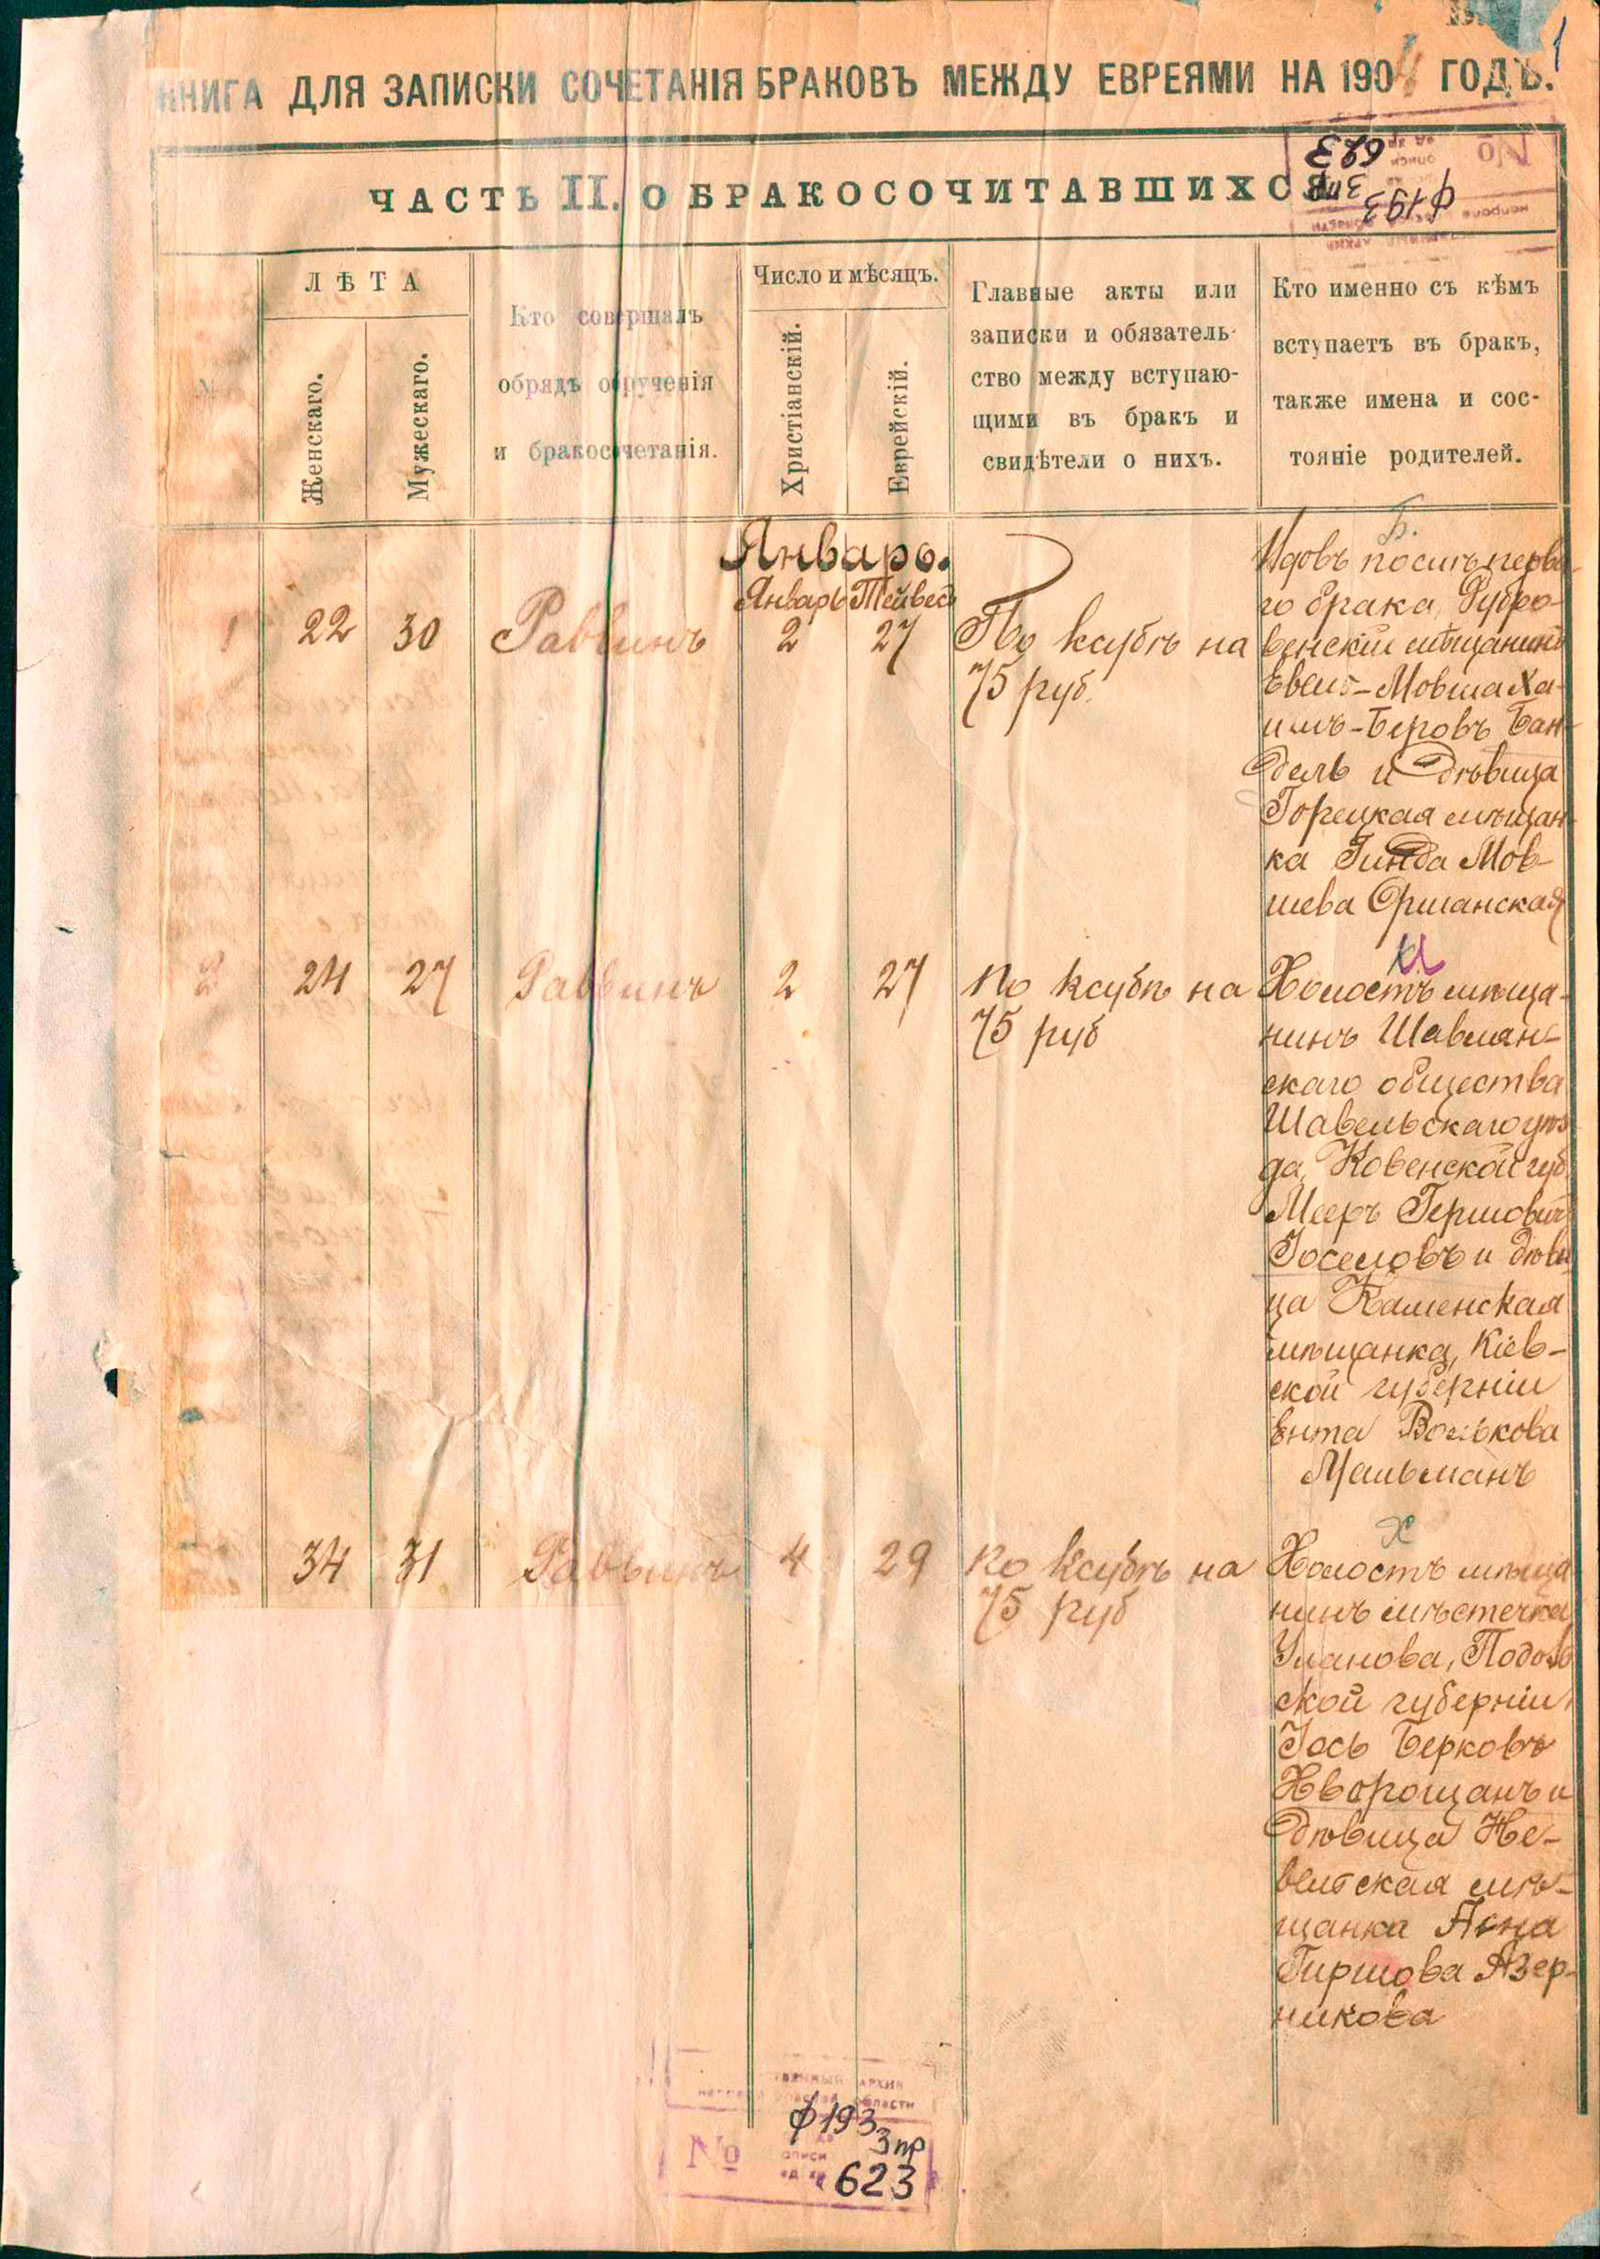 1
КНИГА ДЛЯ ЗАПИСКИ СОЧЕТАНІЯ БРАКОВЪ МЕЖДУ ЕВРЕЯМИ НА 1904 ГОДЪ.
ЧАСТЬ II. О БРАКОСОЧИТАВШИХСЯ
№
ф193
3пр
623
ЛѢТА
Женскаго.
Мужескаго.
Кто совершалъ
обрядъ обрученія
и бракосочетанія.
Число и мѣсяцъ.
Христіанскій.
Еврейскій.
Главные акты или
записки и обязатель-
ство между вступаю-
щими въ бракъ и
свидѣтели о нихъ.
Кто именно съ кѣмъ
вступаетъ въ бракъ,
также имена и сос-
тояніе родителей.
Январь.
Январь Тейвес
1
22
30
Раввинъ
2
27
По ксубѣ на
75 руб.
Б.
Вдовъ послѣ перва-
го брака, Дубро-
венскій мѣщанинъ
Евель-Мовша Ха-
имъ-Беровъ Бан-
дель и дѣвица
Горецкая мѣщан-
ка Гинда Мов-
шева Оршанская
2
24
27
Раввинъ
2
27
По ксубѣ на
75 руб
Холостъ мѣща-
нинъ Шавлян-
скаго общества
Шавельскаго уѣз-
да, Ковенской губ.
Мееръ Гершовичъ
Іоселовъ и дѣви-
ца Каменская
мѣщанка, Кіев-
ской губерніи
Ента Волькова
Мальманъ
34
31
Раввинъ
4
29
По ксубѣ на
75 руб
Х
Холостъ мѣща
нинъ мѣстечка
Уланова, Подоль
ской губерніи,
Іось Берковъ
Хворощанъ и
дѣвица Не-
вельская мѣ-
щанка Асна
Гиршова Азер-
никова
АРХИВ
области
№
описи
ф193
3пр
623